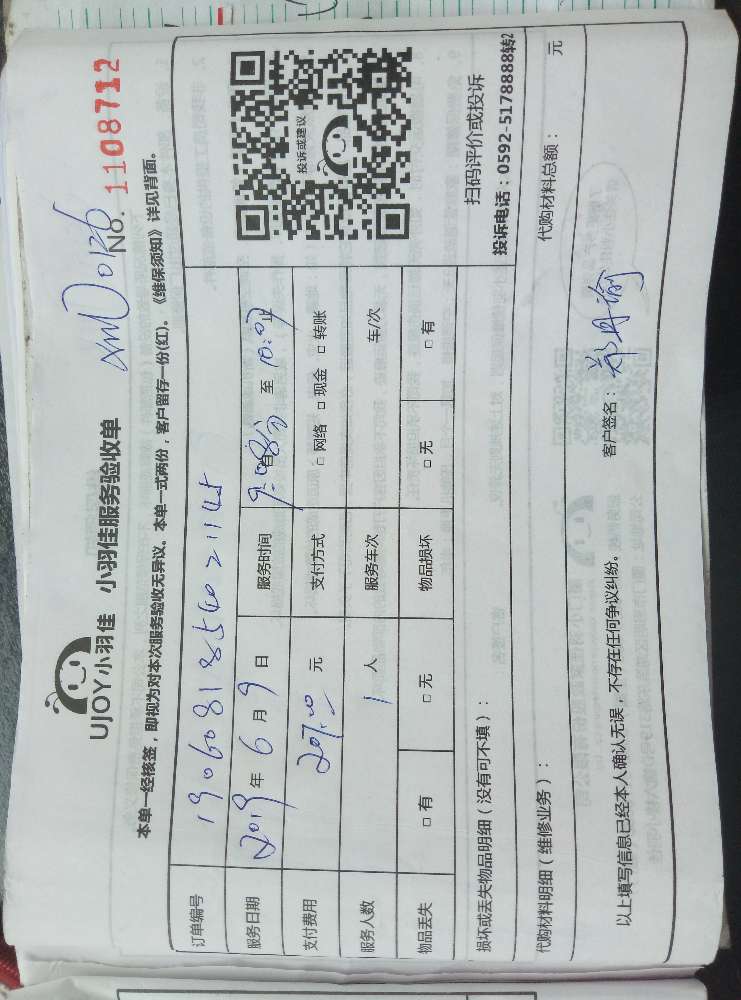 UJOY小羽佳 小羽佳服务验收单
XMD0126
No. 1108712
本单一经核签，即视为对本次服务验收无异议。本单一式两份，客户留存一份(红)。《维保须知》详见背面。
订单编号 19060818554021145
服务日期 2019 年 6 月 9 日 服务时间 9:08分 至 10:07止
支付费用 207.00 元 支付方式 □ 网络 □ 现金 □ 转账
服务人数 1 人 服务车次 车/次
物品丢失 □ 有 □ 无 物品损坏 □ 无 □ 有
投诉或建议
扫码评价或投诉
投诉电话：0592-5178888转2
损坏或丢失物品明细（没有可不填）：
代购材料明细（维修业务）： 代购材料总额： 元
以上填写信息已经本人确认无误，不存在任何争议纠纷。 客户签名：郑丹瑜